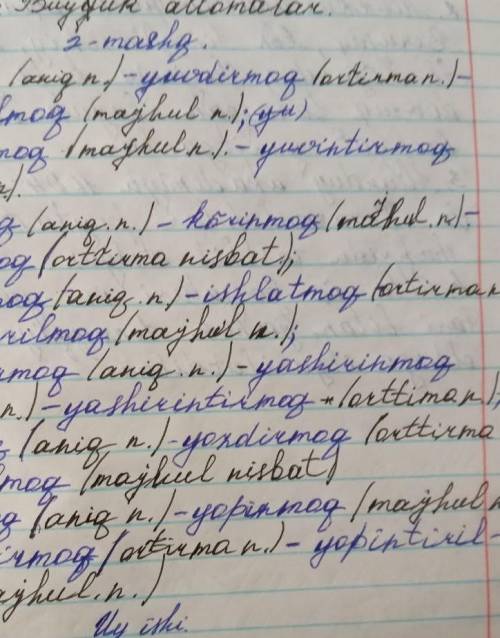 Buyuk allomalar.
2-mashq.
(aniq n.)-yuvdirmoq (ortirma n.)-
lmoq (majhul n.); (yu)
moq (majhul n.).-yuvintirmoq
n).
q (aniq.n.)-körinmoq (majhul.n)-
oq (orttirma nisbat);
moq (aniq n.)-ishlatmoq (ortirma n
irilmoq (majhul n.);
rmoq (aniq.n.)-yashirinmoq
n.)-yashirintirmoq-(orttima n);
q (aniq n.)-yozdirmoq (orttirma
lmoq (majhul nisbat)
q (aniq n.)-yopinmoq (majhul n
irmoq (ortirma n.)-yopintiril-
ajhul.n.)
Uy ishi.